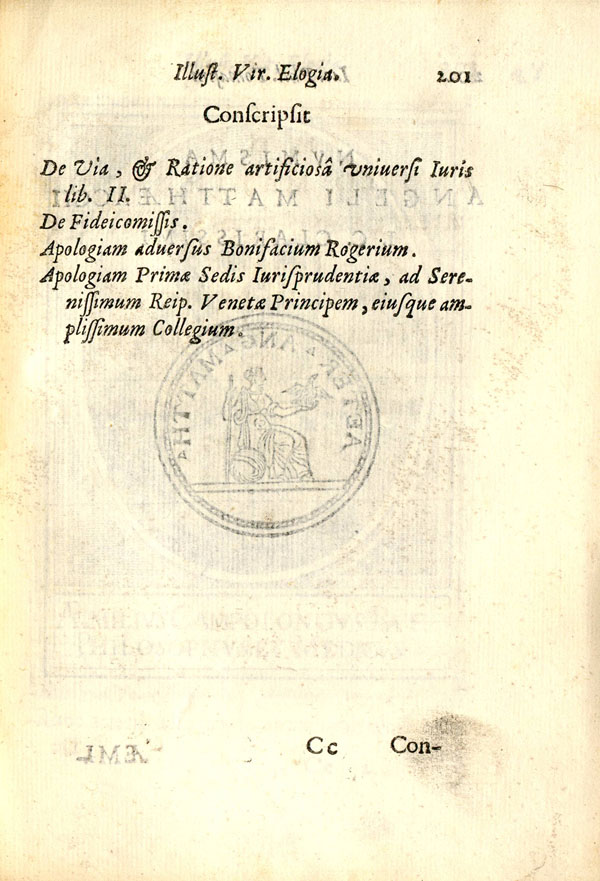 Illuſt. Vir. Elogia. 201
Conſcripſit
De Via, & Ratione artificioſâ vniuerſi Iuris
lib. II.
De Fideicomiſſis.
Apologiam aduerſus Bonifacium Rogerium.
Apologiam Primæ Sedis Iuriſprudentiæ, ad Sere-
niſſimum Reip. Venetæ Principem, eiuſque am-
pliſſimum Collegium.
Cc Con-